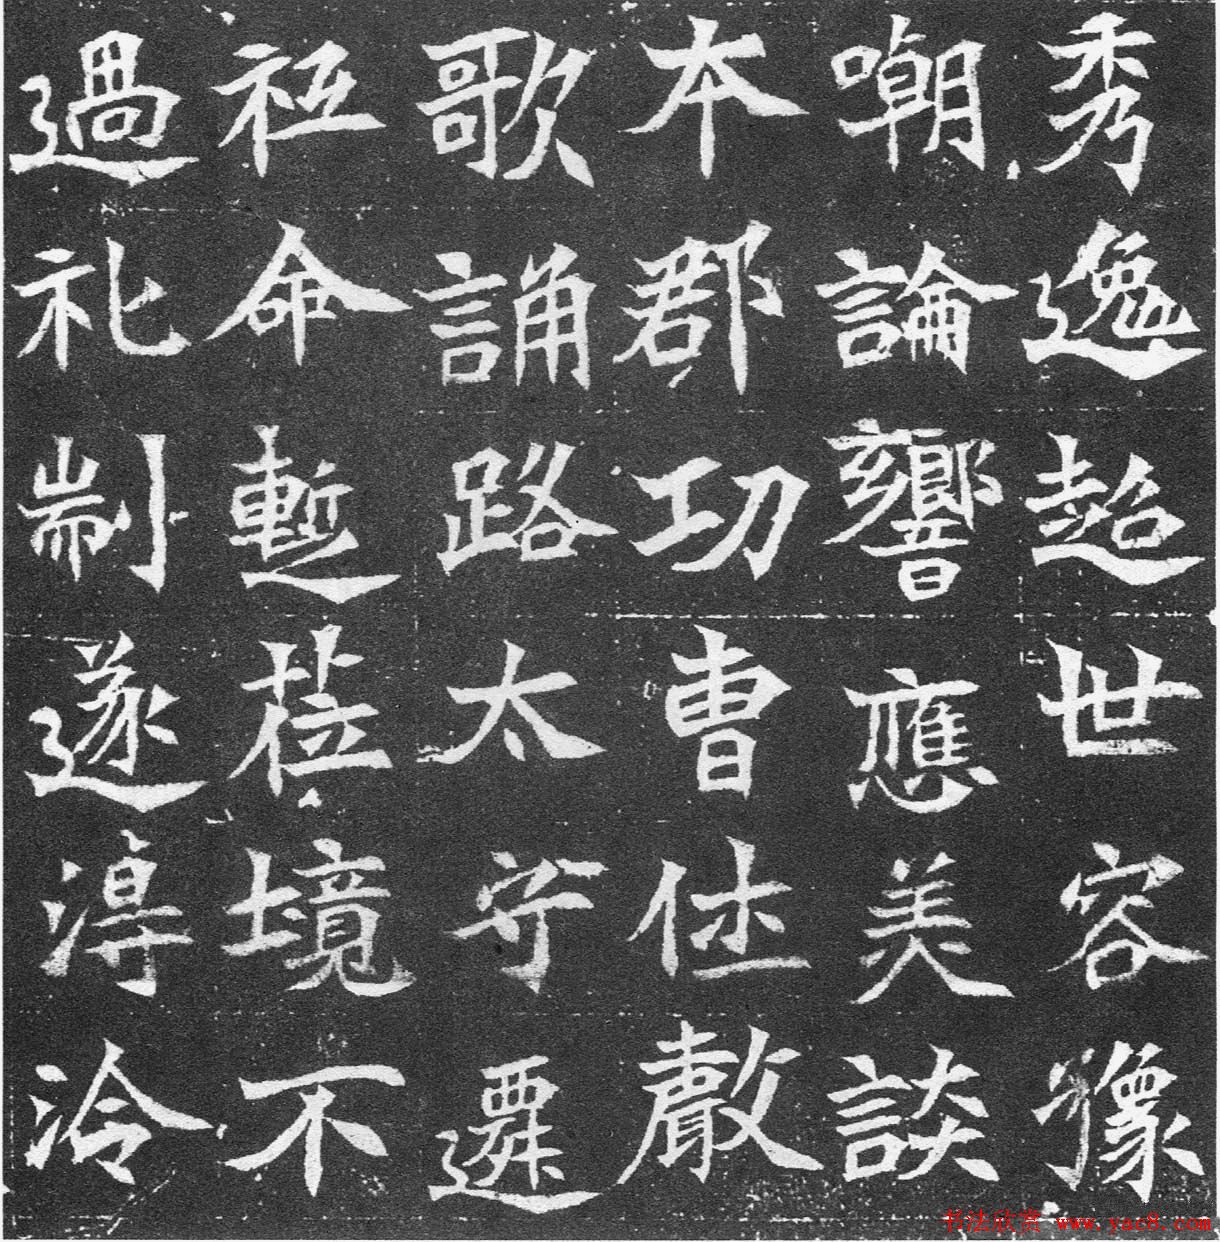 秀逸超世容豫
嘲論響應美談
本郡功曹仕聲
歌誦路太守遷
祗命暫莅境不
過礼剬遂淂泠
书法欣赏 www.yac8.com